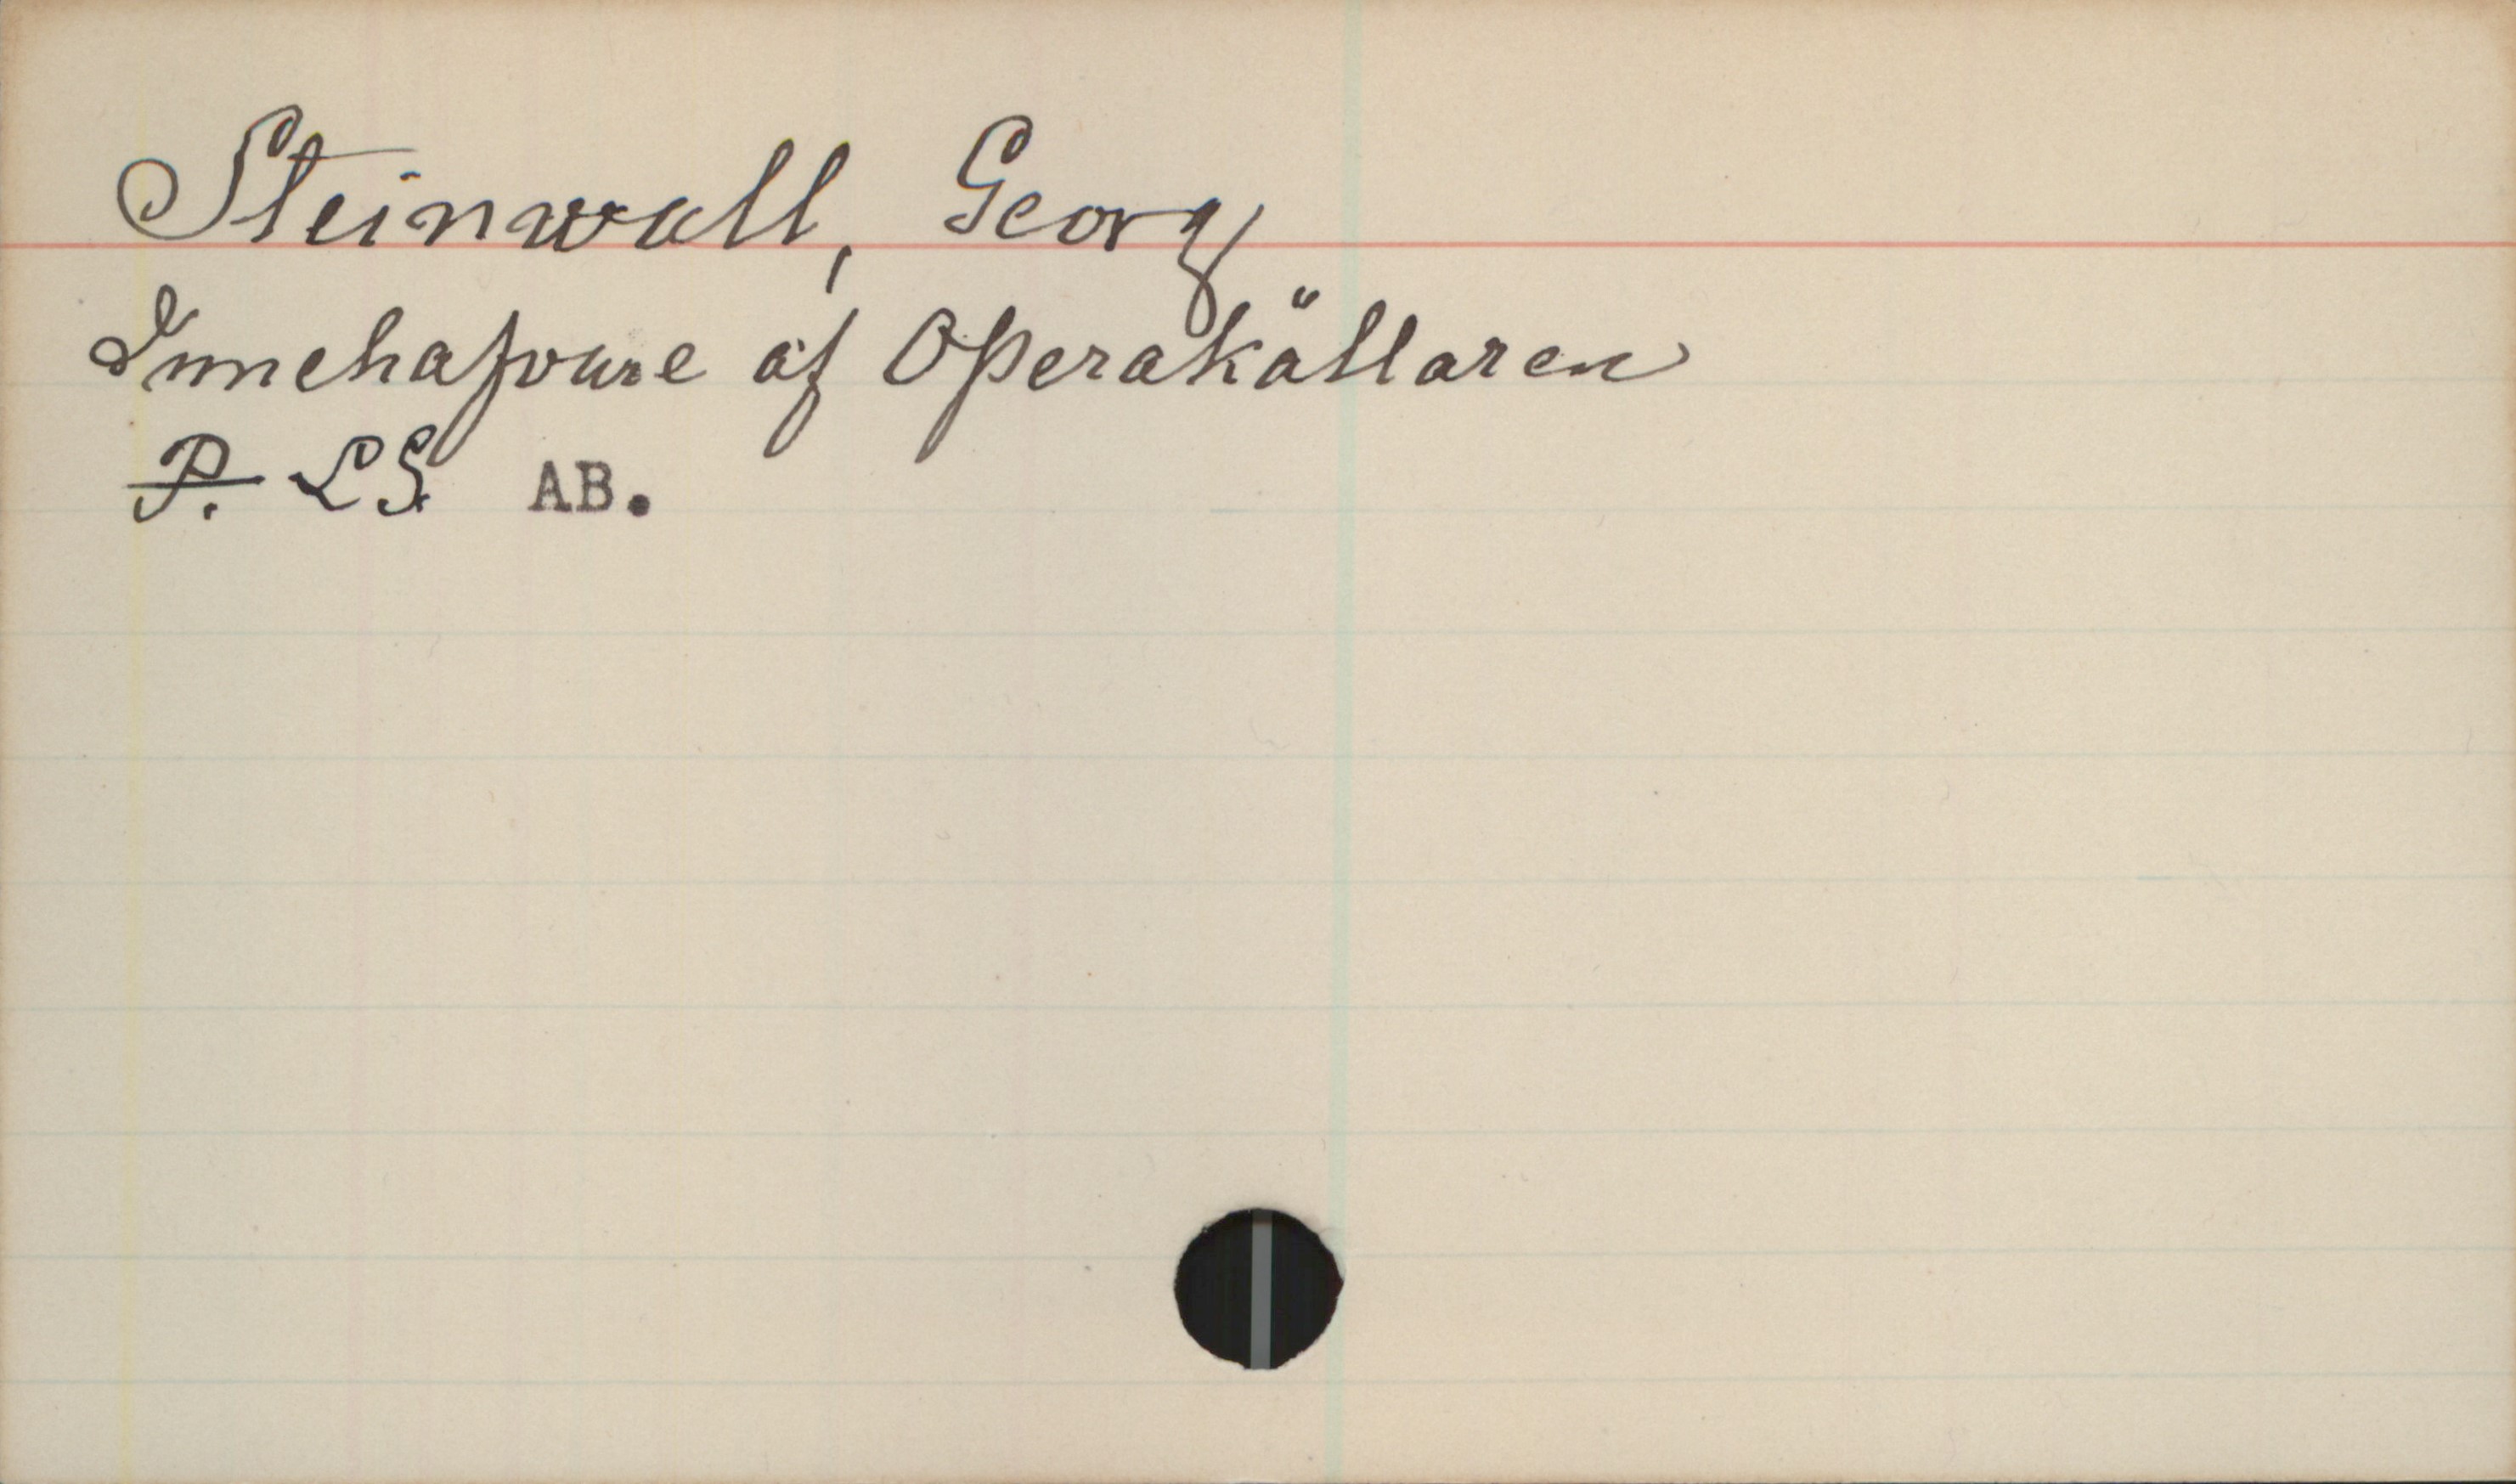 Steinwall, Georg
Innehafvare af Operakällaren
P. LS AB.